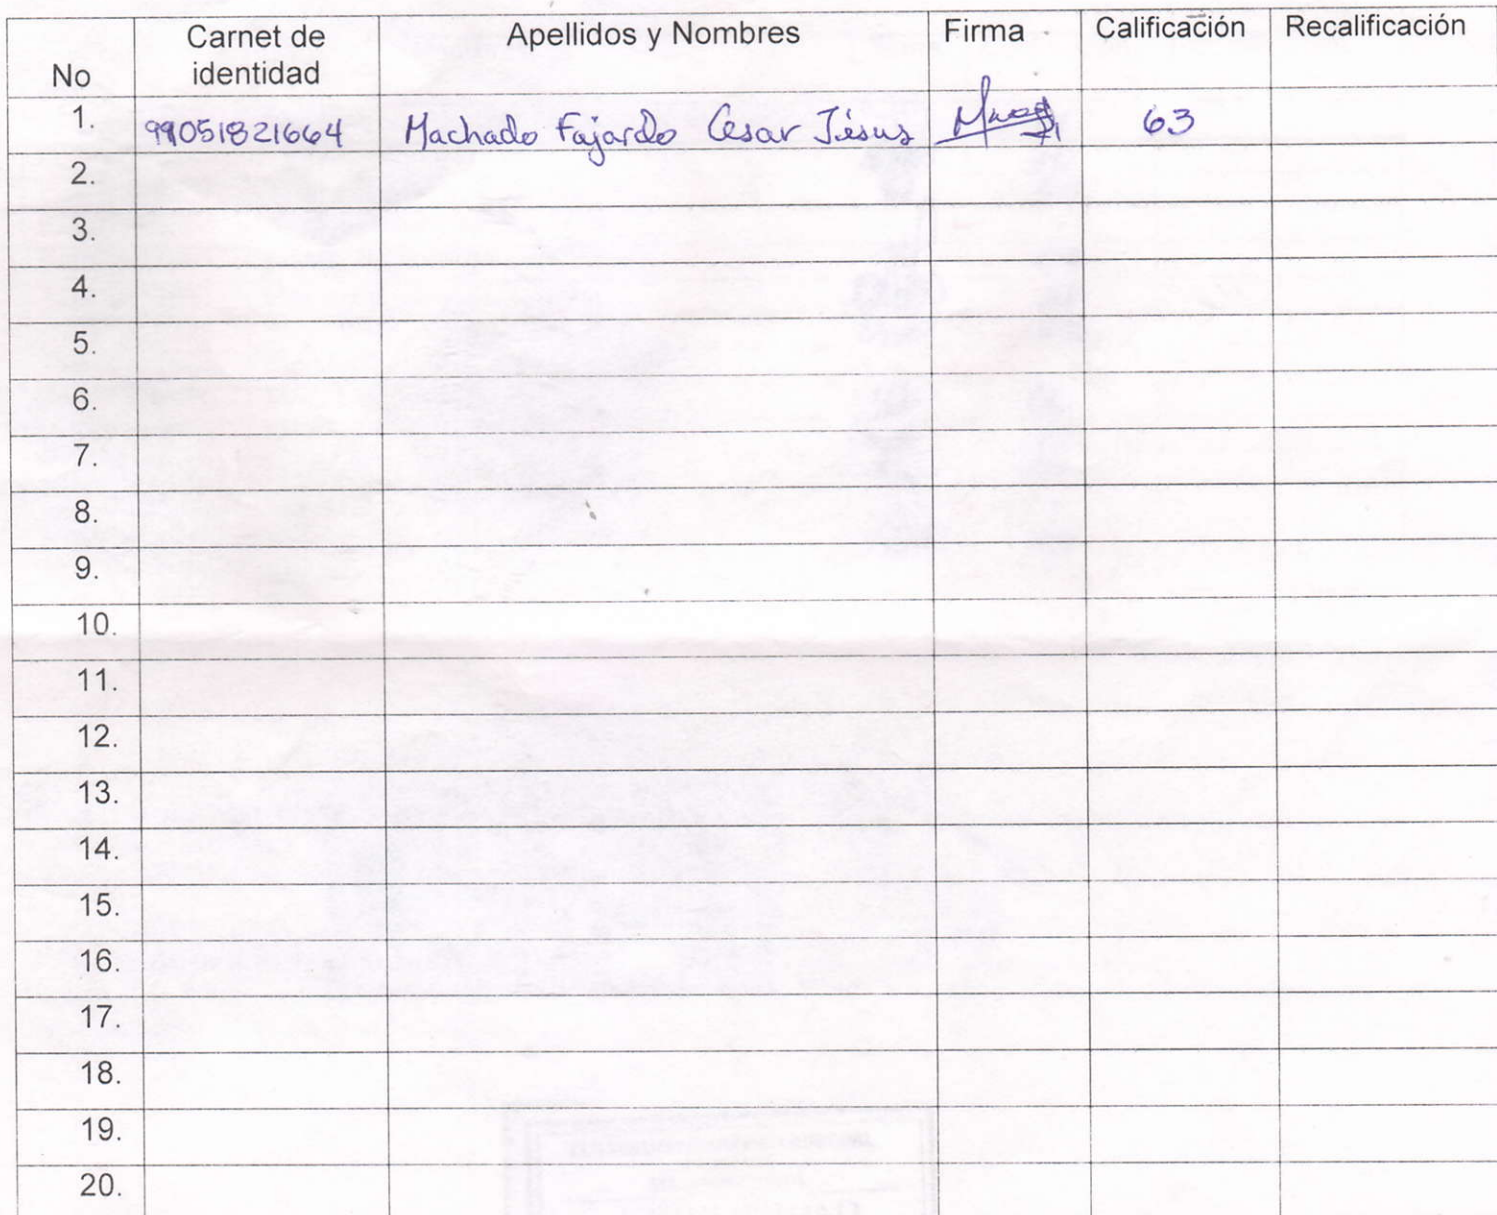 No Carnet de identidad Apellidos y Nombres Firma Calificación Recalificación
1. 99051821664 Machado Fajardo Cesar Jesus 63
2.
3.
4.
5.
6.
7.
8.
9.
10.
11.
12.
13.
14.
15.
16.
17.
18.
19.
20.